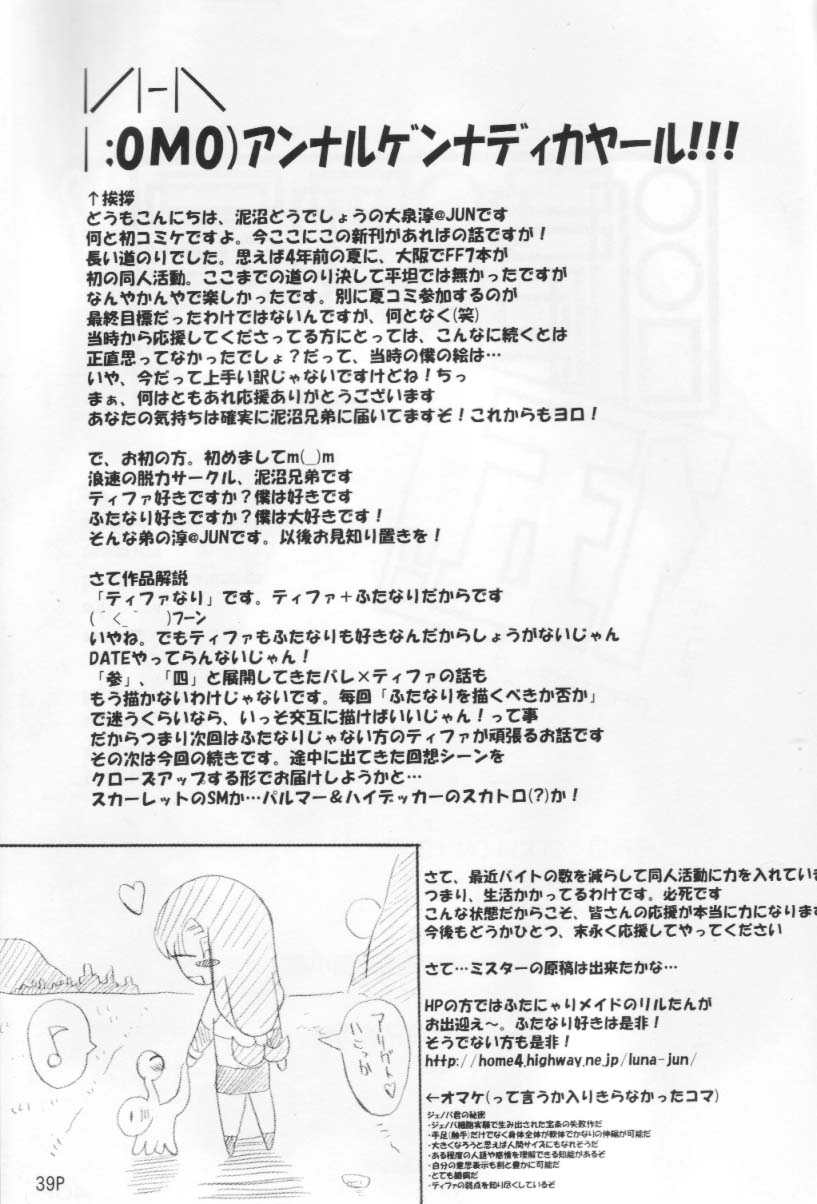 |／|-|＼
| :OMO)アンナルゲンナディカヤール!!!
↑挨拶
どうもこんにちは、泥沼どうでしょうの大泉淳@JUNです
何と初コミケですよ。今ここにこの新刊があればの話ですが！
長い道のりでした。思えば4年前の夏に、大阪でFF7本が
初の同人活動。ここまでの道のり決して平坦では無かったですが
なんやかんやで楽しかったです。別に夏コミ参加するのが
最終目標だったわけではないんですが、何となく(笑)
当時から応援してくださってる方にとっては、こんなに続くとは
正直思ってなかったでしょ？だって、当時の僕の絵は…
いや、今だって上手い訳じゃないですけどね！ちっ
まぁ、何はともあれ応援ありがとうございます
あなたの気持ちは確実に泥沼兄弟に届いてますぞ！これからもヨロ！
で、お初の方。初めましてm(__)m
浪速の脱力サークル、泥沼兄弟です
ティファ好きですか？僕は好きです
ふたなり好きですか？僕は大好きです！
そんな弟の淳@JUNです。以後お見知り置きを！
さて作品解説
「ティファなり」です。ティファ＋ふたなりだからです
(´<_` )ﾌｰﾝ
いやね。でもティファもふたなりも好きなんだからしょうがないじゃん
DATEやってらんないじゃん！
「参」、「四」と展開してきたバレ×ティファの話も
もう描かないわけじゃないです。毎回「ふたなりを描くべきか否か」
で迷うくらいなら、いっそ交互に描けばいいじゃん！って事
だからつまり次回はふたなりじゃない方のティファが頑張るお話です
その次は今回の続きです。途中に出てきた回想シーンを
クローズアップする形でお届けしようかと…
スカーレットのSMか…パルマー＆ハイデッカーのスカトロ(？)か！
さて、最近バイトの数を減らして同人活動に力を入れていま
つまり、生活かかってるわけです。必死です
こんな状態だからこそ、皆さんの応援が本当に力になります
今後もどうかひとつ、末永く応援してやってください
さて…ミスターの原稿は出来たかな…
HPの方ではふたにゃりメイドのリルたんが
お出迎え〜。ふたなり好きは是非！
そうでない方も是非！
http://home4.highway.ne.jp/luna-jun/
←オマケ(って言うか入りきらなかったコマ)
ジェノバ君の秘密
・ジェノバ細胞実験で生み出された宝条の失敗作だ
・手足(触手)だけでなく身体全体が軟体でかなりの伸縮が可能だ
・大きくなろうと思えば人間サイズにもなれそうだ
・ある程度の人語や感情を理解できる知能があるぞ
・自分の意思表示も割と豊かに可能だ
・とても臆病だ
・ティファの弱点を知り尽くしているぞ
♪
39P